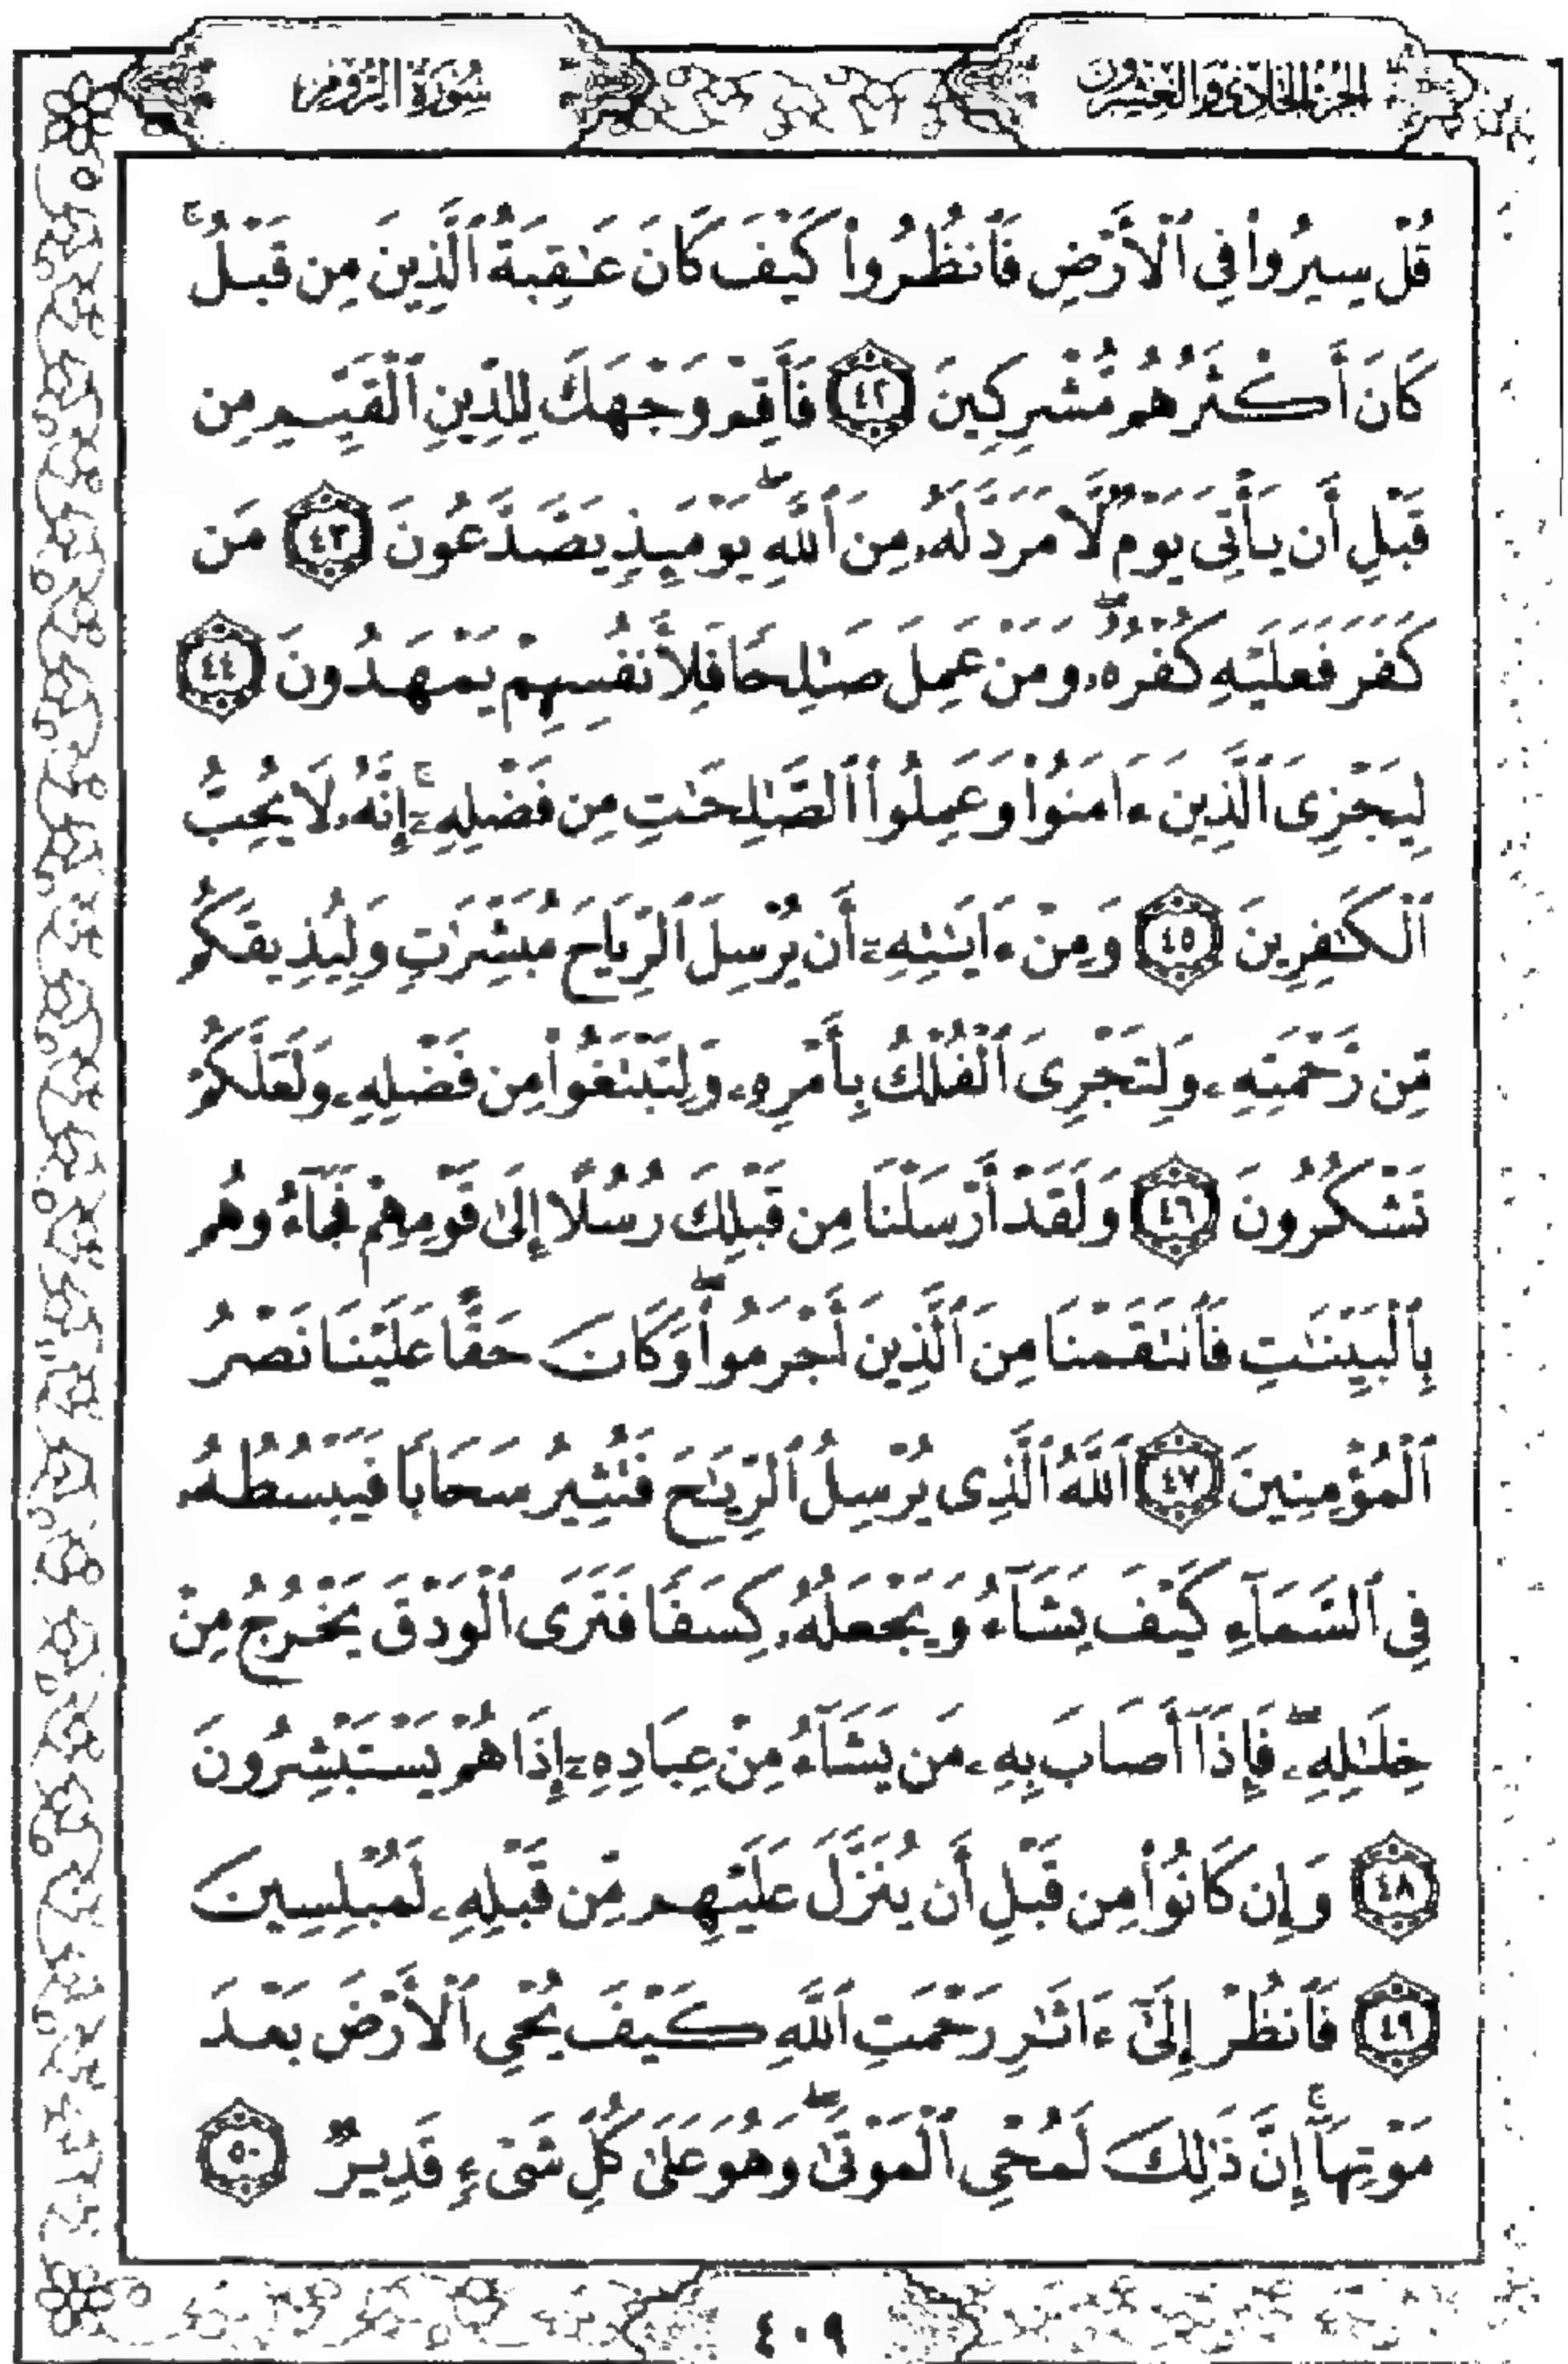 الجزء الحادي والعشرون
سورة الروم
قُلْ سِيرُوا۟ فِى ٱلْأَرْضِ فَٱنظُرُوا۟ كَيْفَ كَانَ عَٰقِبَةُ ٱلَّذِينَ مِن قَبْلُ ۚ
كَانَ أَكْثَرُهُم مُّشْرِكِينَ ٤٢ فَأَقِمْ وَجْهَكَ لِلدِّينِ ٱلْقَيِّمِ مِن
قَبْلِ أَن يَأْتِىَ يَوْمٌ لَّا مَرَدَّ لَهُۥ مِنَ ٱللَّهِ ۖ يَوْمَئِذٍ يَصَّدَّعُونَ ٤٣ مَن
كَفَرَ فَعَلَيْهِ كُفْرُهُۥ ۖ وَمَنْ عَمِلَ صَٰلِحًا فَلِأَنفُسِهِمْ يَمْهَدُونَ ٤٤
لِيَجْزِىَ ٱلَّذِينَ ءَامَنُوا۟ وَعَمِلُوا۟ ٱلصَّٰلِحَٰتِ مِن فَضْلِهِۦٓ ۚ إِنَّهُۥ لَا يُحِبُّ
ٱلْكَٰفِرِينَ ٤٥ وَمِنْ ءَايَٰتِهِۦٓ أَن يُرْسِلَ ٱلرِّيَاحَ مُبَشِّرَٰتٍ وَلِيُذِيقَكُم
مِّن رَّحْمَتِهِۦ وَلِتَجْرِىَ ٱلْفُلْكُ بِأَمْرِهِۦ وَلِتَبْتَغُوا۟ مِن فَضْلِهِۦ وَلَعَلَّكُمْ
تَشْكُرُونَ ٤٦ وَلَقَدْ أَرْسَلْنَا مِن قَبْلِكَ رُسُلًا إِلَىٰ قَوْمِهِمْ فَجَآءُوهُم
بِٱلْبَيِّنَٰتِ فَٱنتَقَمْنَا مِنَ ٱلَّذِينَ أَجْرَمُوا۟ ۖ وَكَانَ حَقًّا عَلَيْنَا نَصْرُ
ٱلْمُؤْمِنِينَ ٤٧ ٱللَّهُ ٱلَّذِى يُرْسِلُ ٱلرِّيَٰحَ فَتُثِيرُ سَحَابًا فَيَبْسُطُهُۥ
فِى ٱلسَّمَآءِ كَيْفَ يَشَآءُ وَيَجْعَلُهُۥ كِسَفًا فَتَرَى ٱلْوَدْقَ يَخْرُجُ مِنْ
خِلَٰلِهِۦ ۖ فَإِذَآ أَصَابَ بِهِۦ مَن يَشَآءُ مِنْ عِبَادِهِۦٓ إِذَا هُمْ يَسْتَبْشِرُونَ
٤٨ وَإِن كَانُوا۟ مِن قَبْلِ أَن يُنَزَّلَ عَلَيْهِم مِّن قَبْلِهِۦ لَمُبْلِسِينَ
٤٩ فَٱنظُرْ إِلَىٰٓ ءَاثَٰرِ رَحْمَتِ ٱللَّهِ كَيْفَ يُحْىِ ٱلْأَرْضَ بَعْدَ
مَوْتِهَآ ۚ إِنَّ ذَٰلِكَ لَمُحْىِ ٱلْمَوْتَىٰ ۖ وَهُوَ عَلَىٰ كُلِّ شَىْءٍ قَدِيرٌ ٥٠
٤٠٩